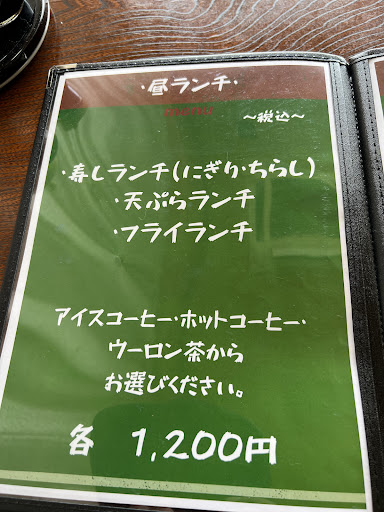 ・昼ランチ・
～税込～
・寿しランチ(にぎり・ちらし)
・天ぷらランチ
・フライランチ
アイスコーヒー・ホットコーヒー・
ウーロン茶から
お選びください。
各 1,200円